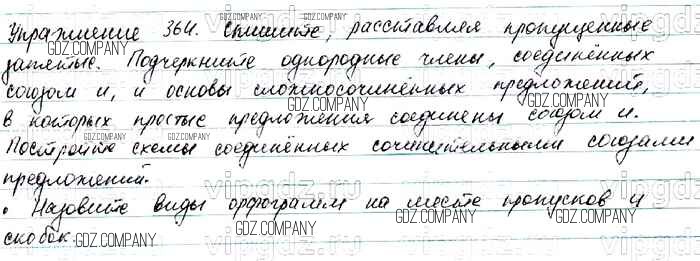 Упражнение 364. Спишите, расставляя пропущенные
запятые. Подчеркните однородные члены, соединённых
союзом и, и основы сложносочинённых предложений,
в которых простые предложения соединены союзом и.
Постройте схемы соединённых сочинительными союзами
предложений.
• Назовите виды орфограмм на месте пропусков и
скобок.
GDZ.COMPANY
vipgdz.ru